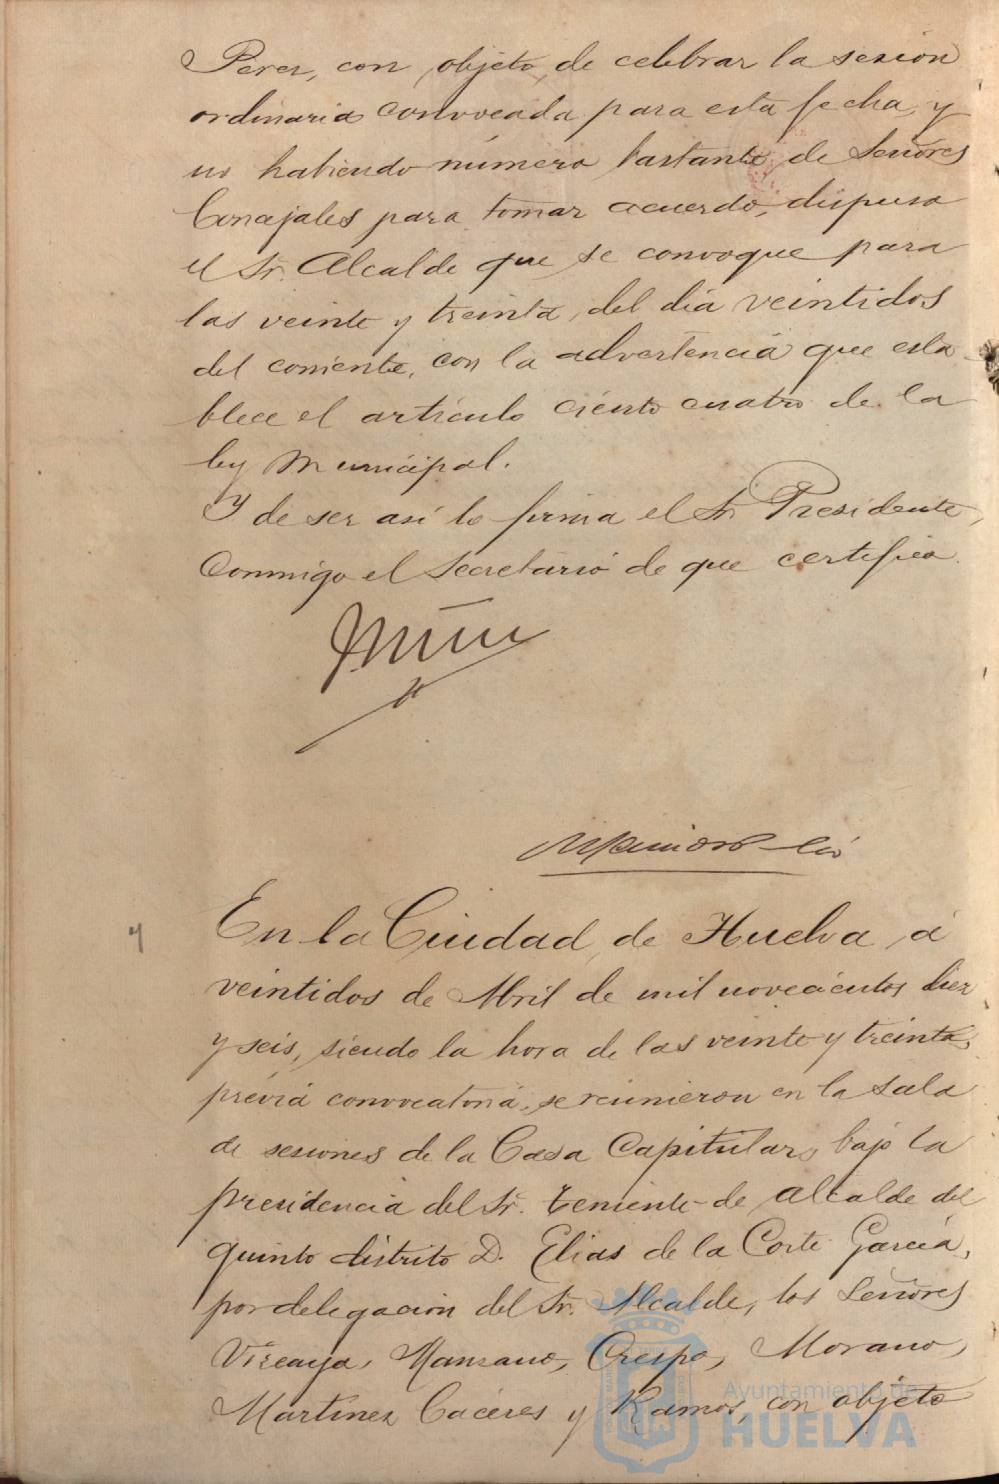 Perez, con objeto de celebrar la sesion
ordinaria convocada para esta fecha, y
no habiendo número bastante de Señores
Concejales para tomar acuerdo, dispuso
el Sr. Alcalde que se convoque para
las veinte y treinta, del dia veintidos
del corriente, con la advertencia que esta
blece el artículo ciento cuatro de la
ley Municipal.
Y de ser asi lo firma el Sr. Presidente,
conmigo el Secretario de que certifico.
En la Ciudad de Huelva, á
veintidos de Abril de mil novecientos diez
y seis, siendo la hora de las veinte y treinta,
prévia convocatoria, se reunieron en la Sala
de sesiones de la Casa Capitular, bajo la
presidencia del Sr. Teniente de alcalde del
quinto distrito D. Elias de la Corte García,
por delegación del Sr. Alcalde, los Señores
Vizcaya, Manzano, Crespo, Morano,
Martínez Cáceres y Ramos, con objeto
Ayuntamiento de
HUELVA